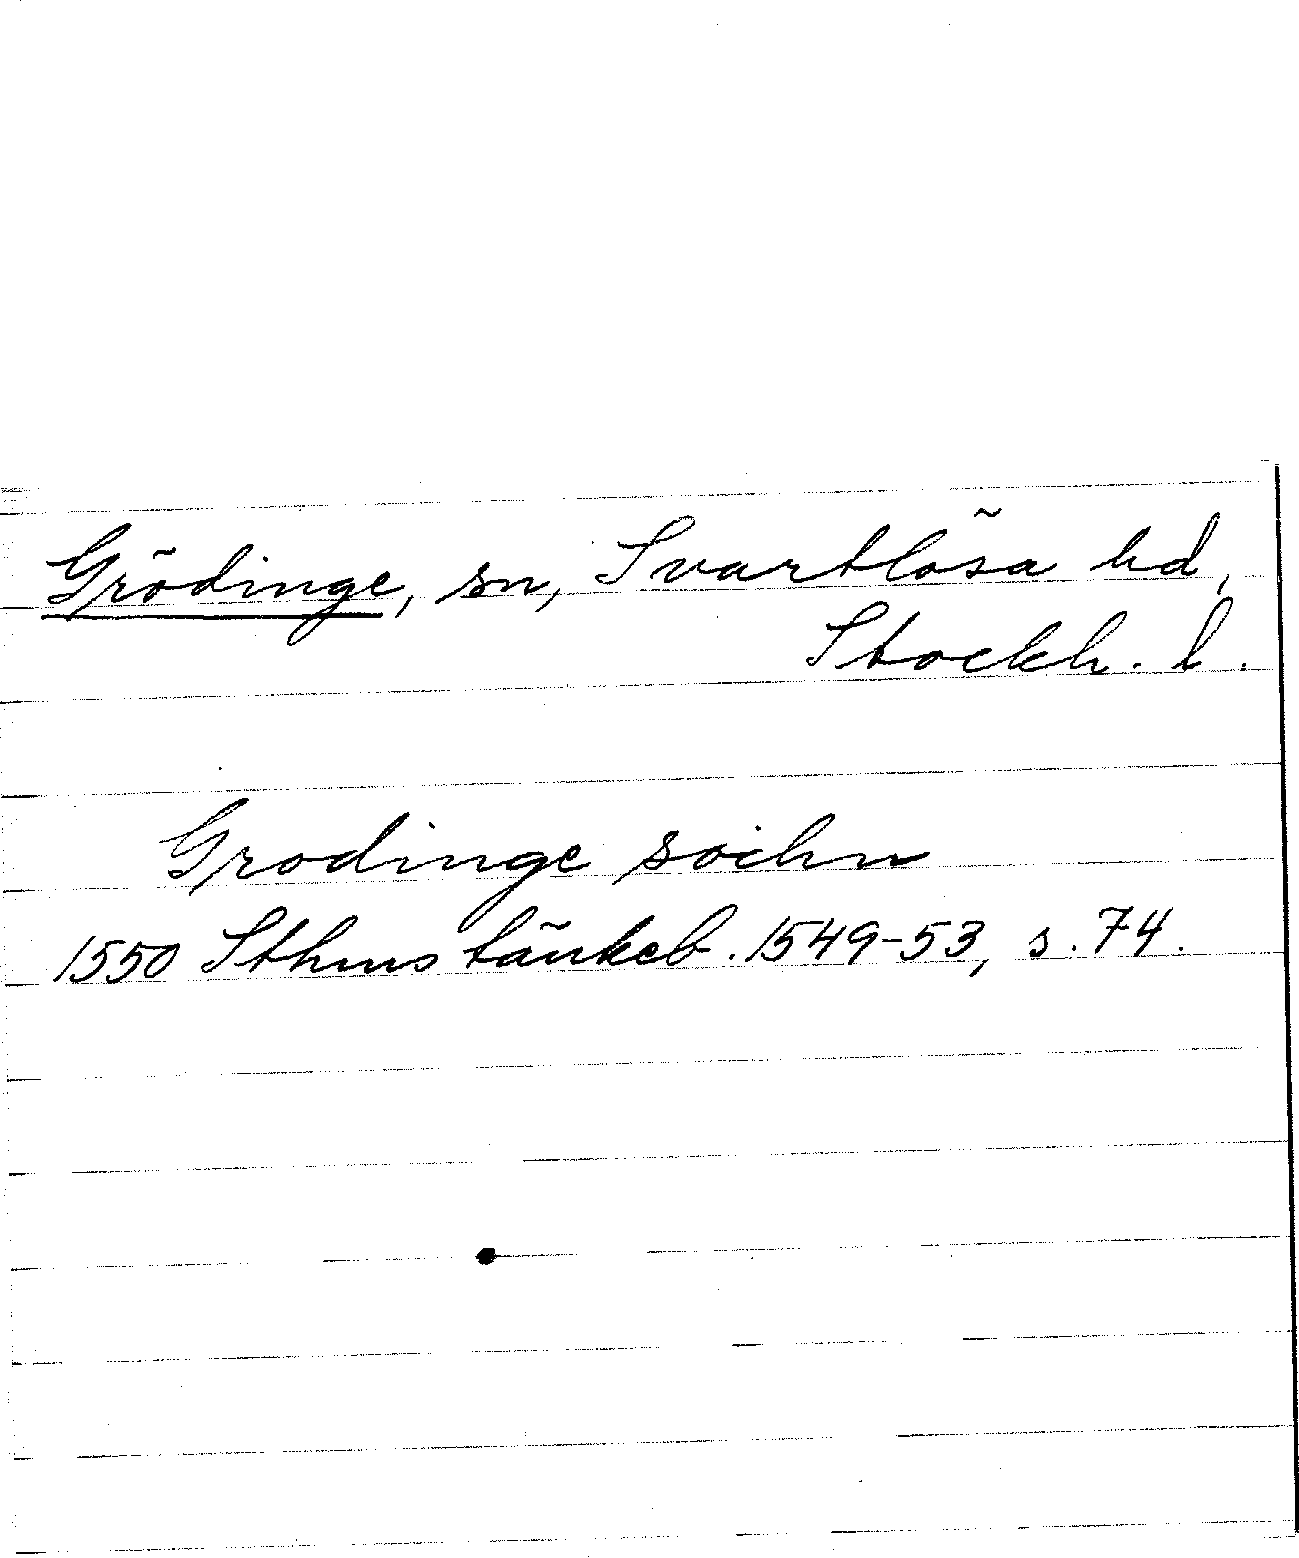 Grödinge, sn, Svartlösa hd,
Stockh. l.
Grodinge sochn
1550 Sthms tänkeb. 1549-53, s. 74.